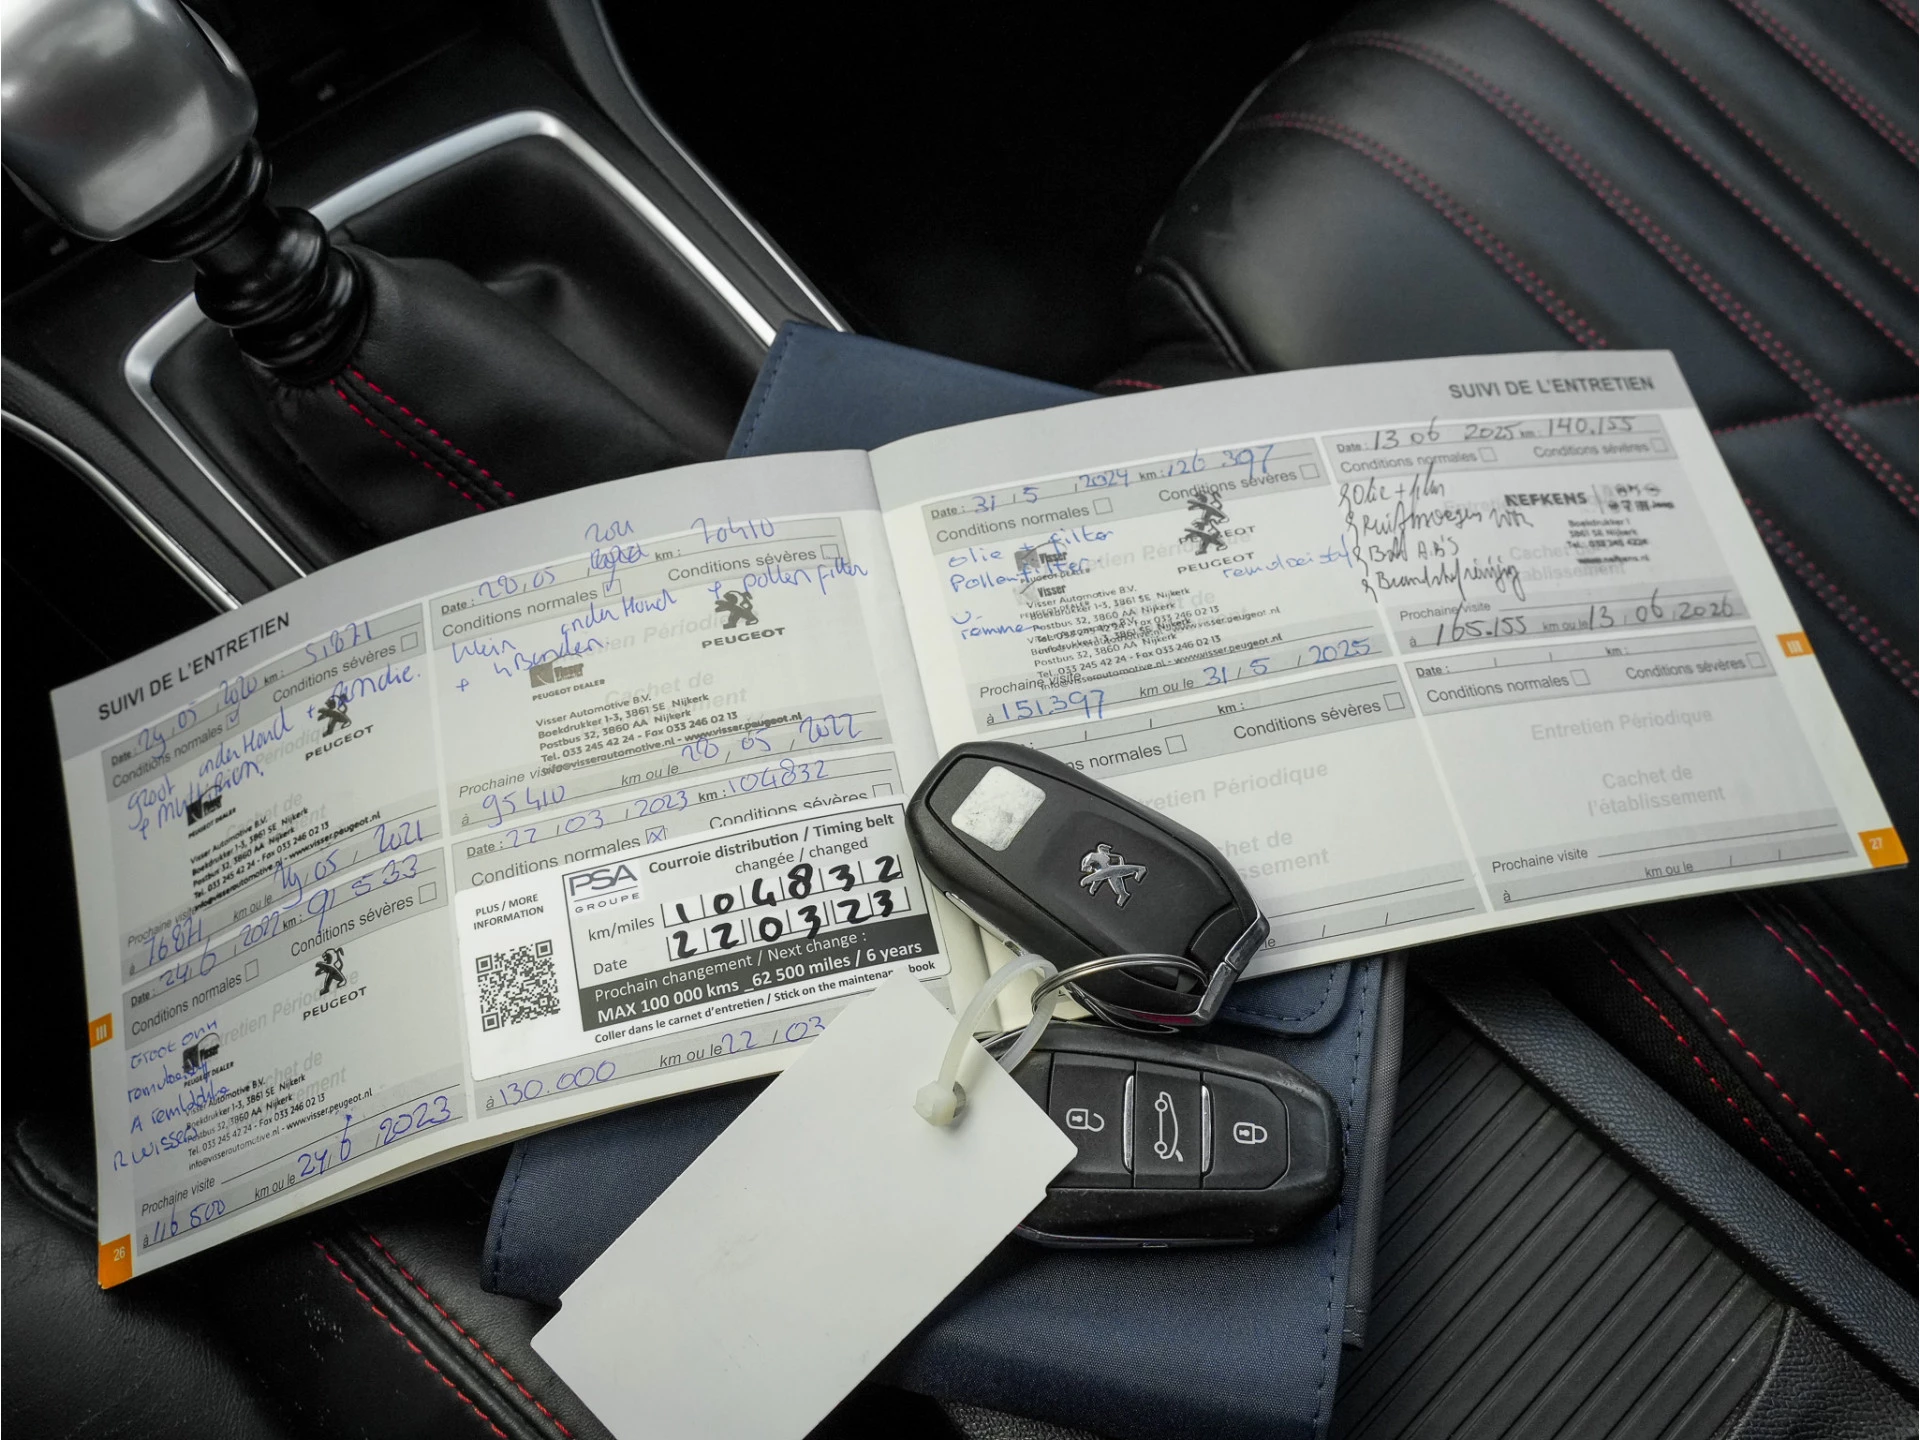 SUIVI DE L'ENTRETIEN
Date : 24, 05, 2020 km : 51871
Conditions normales Conditions sévères
groot onderHoud +
+ Multiriem.
PEUGEOT
Visser
PEUGEOT DEALER
Visser Automotive B.V.
Boekdrukker 1-3, 3861 SE Nijkerk
Postbus 32, 3860 AA Nijkerk
Tel. 033 245 42 24 - Fax 033 246 02 13
info@visserautomotive.nl - www.visser.peugeot.nl
Prochaine visite
à 76871 km ou le 24, 05, 2021
Date : 24, 6, 2022 km : 91533
Conditions normales Conditions sévères
Entretien Périodique
PEUGEOT
Groot onH
Visser
PEUGEOT DEALER
Visser Automotive B.V.
Boekdrukker 1-3, 3861 SE Nijkerk
Postbus 32, 3860 AA Nijkerk
Tel. 033 245 42 24 - Fax 033 246 02 13
info@visserautomotive.nl - www.visser.peugeot.nl
Prochaine visite
à 116 500 km ou le 24, 6, 2023
26
III
2021
Date : 28, 05 km : 70410
Conditions normales Conditions sévères
klein onderHoud + pollen filter
+ 4 Banden
PEUGEOT
Visser
PEUGEOT DEALER
Cachet de
Visser Automotive B.V.
Boekdrukker 1-3, 3861 SE Nijkerk
Postbus 32, 3860 AA Nijkerk
Tel. 033 245 42 24 - Fax 033 246 02 13
info@visserautomotive.nl - www.visser.peugeot.nl
Prochaine visite
à 95410 km ou le 28, 05, 2022
Date : 22, 03, 2023 km : 104832
Conditions normales Conditions sévères
PLUS / MORE
INFORMATION
PSA
GROUPE
Courroie distribution / Timing belt
changée / changed
km/miles 104832
Date 220323
Prochain changement / Next change :
MAX 100 000 kms _62 500 miles / 6 years
Coller dans le carnet d'entretien / Stick on the maintenance book
à 130.000 km ou le 22, 03
SUIVI DE L'ENTRETIEN
Date : 31, 5, 2024 km : 126 397
Conditions normales Conditions sévères
olie + filter
Pollenfilter
PEUGEOT
PEUGEOT
Visser
PEUGEOT DEALER
Visser
Visser Automotive B.V.
Boekdrukker 1-3, 3861 SE Nijkerk
Postbus 32, 3860 AA Nijkerk
Tel. 033 245 42 24 - Fax 033 246 02 13
Prochaine visite
à 151.397 km ou le 31, 5, 2025
km :
Conditions normales Conditions sévères
Entretien Périodique
Date : 13 06 2025 km : 140.155
Conditions normales Conditions sévères
Olie + filter
NEFKENS
Boekdrukker 1
Prochaine visite
à 165.155 km ou le 13, 06, 2026
Date : km :
Conditions normales Conditions sévères
Entretien Périodique
Cachet de
l'établissement
Prochaine visite
à km ou le
III
27